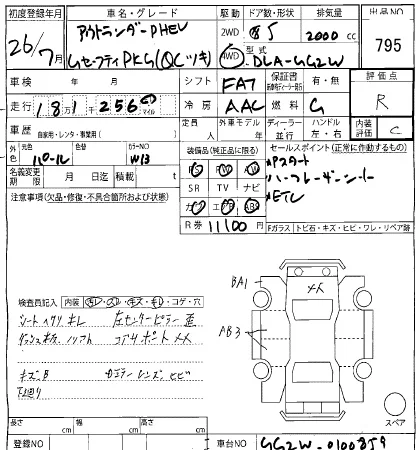 初度登録年月 車名・グレード 駆動 ドア数・形状 排気量 出品NO
26/7月 アウトランダーPHEV 2WD 5 2000cc 795
GセーフティPKG(QCツキ) 4WD 型式 DLA-GG2W
車検 年 月 シフト FAT 保証書 有・無 評価点
走行 18万1千256 マイル 冷房 AAC 燃料 G R
車歴 自家用・レンタ・事業用( ) 定員 人 外車モデル 年 ディーラー 並行 ハンドル 左・右 内装評価 C
外色 元色 色替 カラーNO 装備品(純正品に限る) セールスポイント(正常に作動するもの)
パール W13 PS PW Pスタート
名義変更期限 月 日迄 積載 t SR TV ナビ
注意事項(欠品・修復・不具合箇所および状態) エアB ABS ETC
R券 11100円 Fガラス トビ石・キズ・ヒビ・ワレ・リペア跡
BA1 メイ
検査員記入 内装 汚レ・スレ・キズ・キレ・コゲ・穴
シートヘタリ キレ 左センターピラー 歪 AB3
コアサポート メイ
キズB レンズ ヒビ
下廻り
スペア
長さ cm 幅 cm 高さ cm
登録NO 車台NO GG2W-0100859